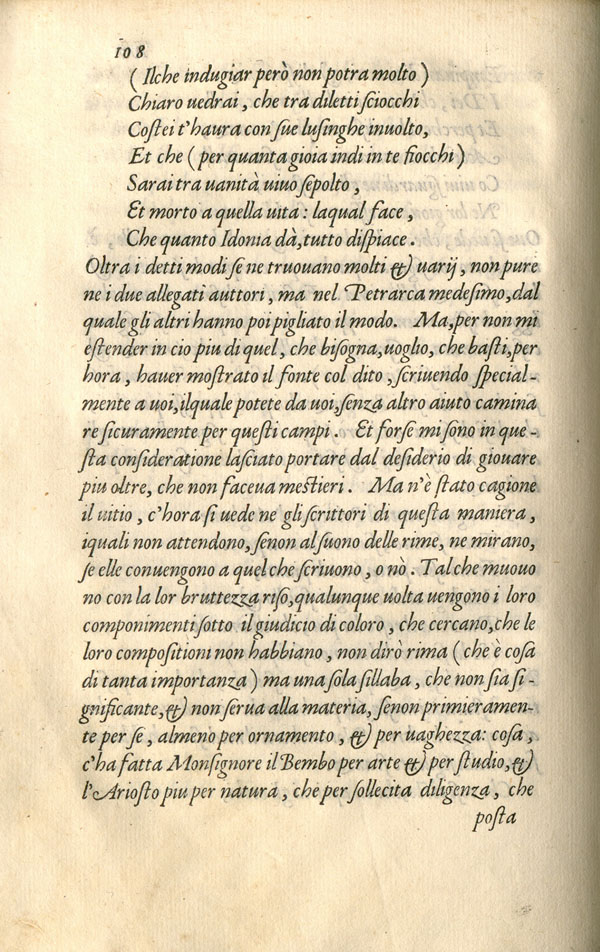 108
( Ilche indugiar però non potra molto )
Chiaro uedrai, che tra diletti sciocchi
Costei t'haura con sue lusinghe inuolto,
Et che ( per quanta gioia indi in te fiocchi )
Sarai tra uanità uiuo sepolto,
Et morto a quella uita: laqual face,
Che quanto Idonia dà, tutto dispiace.
Oltra i detti modi se ne truouano molti & uarij, non pure
ne i due allegati auttori, ma nel Petrarca medesimo, dal
quale gli altri hanno poi pigliato il modo. Ma, per non mi
estender in cio piu di quel, che bisogna, uoglio, che basti, per
hora, hauer mostrato il fonte col dito, scriuendo special-
mente a uoi, ilquale potete da uoi, senza altro aiuto camina
re sicuramente per questi campi. Et forse mi sono in que-
sta consideratione lasciato portare dal desiderio di giouare
piu oltre, che non faceua mestieri. Ma n'è stato cagione
il uitio, c'hora si uede ne gli scrittori di questa maniera,
iquali non attendono, senon al suono delle rime, ne mirano,
se elle conuengono a quel che scriuono, o nò. Tal che muouo
no con la lor bruttezza riso, qualunque uolta uengono i loro
componimenti sotto il giudicio di coloro, che cercano, che le
loro compositioni non habbiano, non dirò rima ( che è cosa
di tanta importanza ) ma una sola sillaba, che non sia si-
gnificante, & non serua alla materia, senon primieramen-
te per se, almeno per ornamento, & per uaghezza: cosa,
c'ha fatta Monsignore il Bembo per arte & per studio, &
l'Ariosto piu per natura, che per sollecita diligenza, che
posta